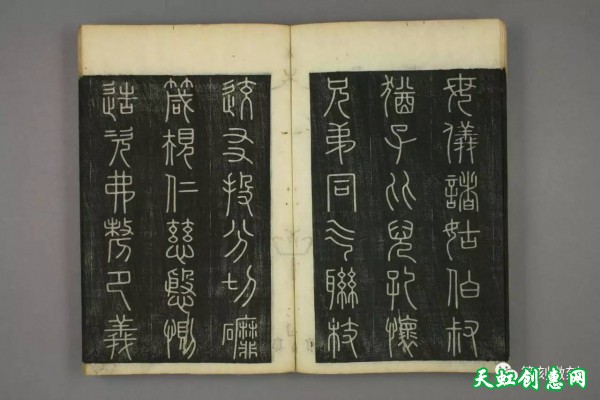 母儀諸姑伯叔
猶子比兒孔懷
兄弟同气聯枝
这友投分切礳
箴規仁慈㥯惻
造次弗剺卪義
天虹创意网